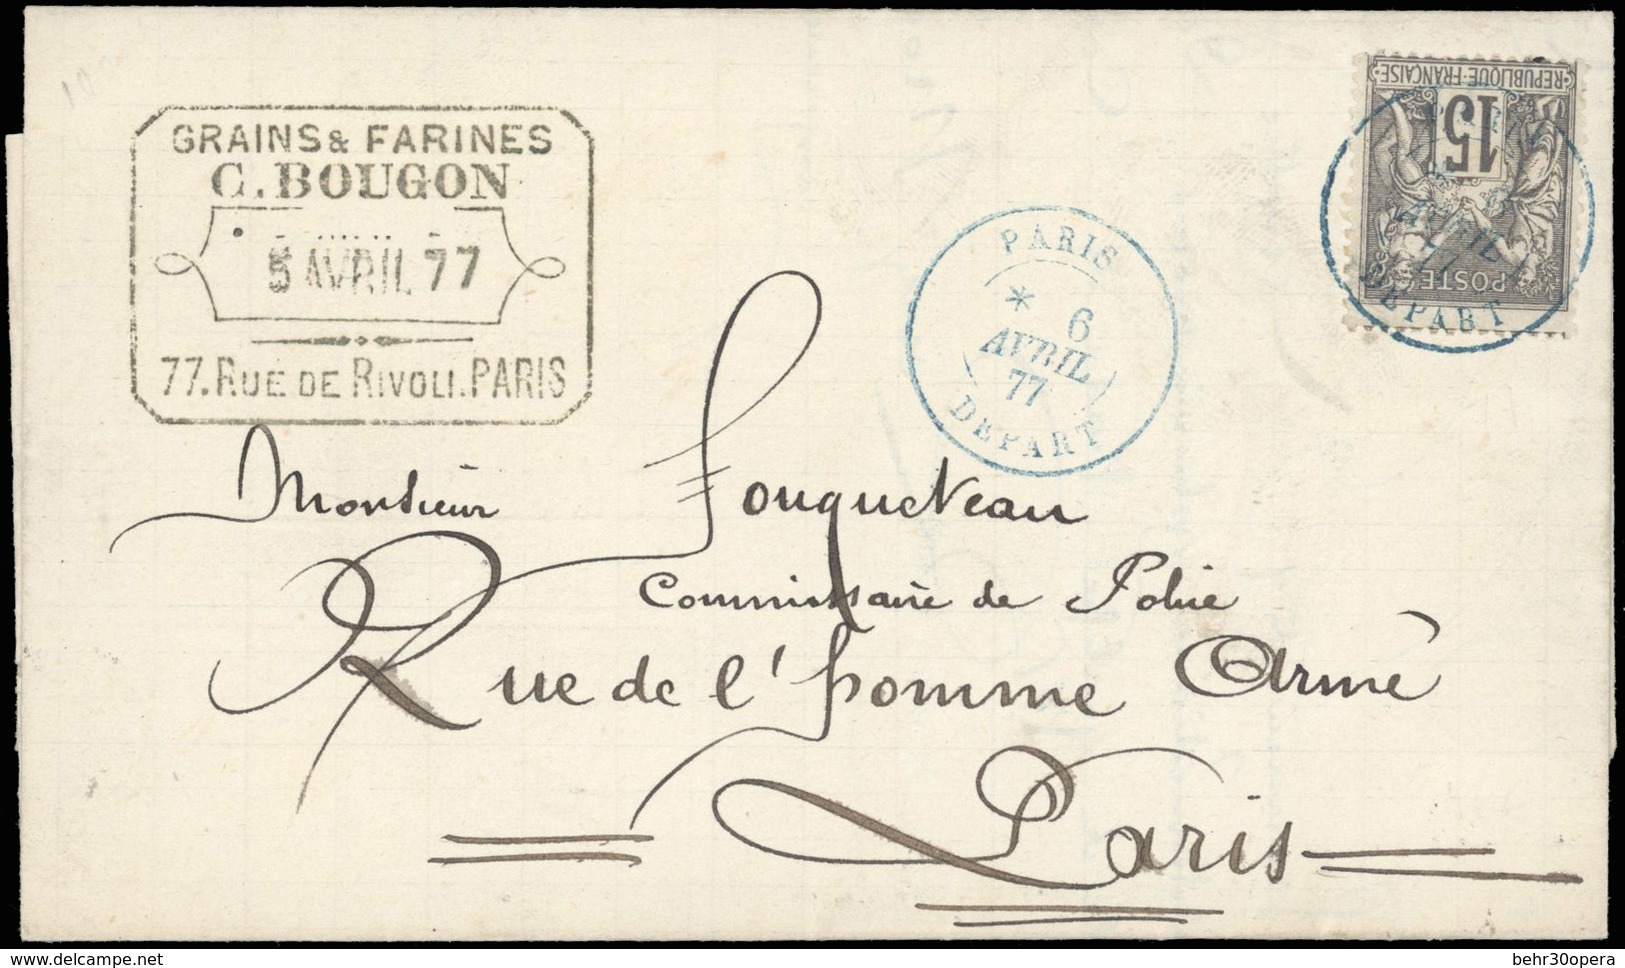 GRAINS & FARINES
C. BOUGON
5 AVRIL 77
77. RUE DE RIVOLI. PARIS
PARIS
* 6
AVRIL
77
DEPART
REPUBLIQUE FRANÇAISE
15
POSTE
AVRIL
DEPART
Monsieur Fouqueteau
Commissaire de Police
Rue de l'homme Armé
Paris
delcampe.net
behr30opera